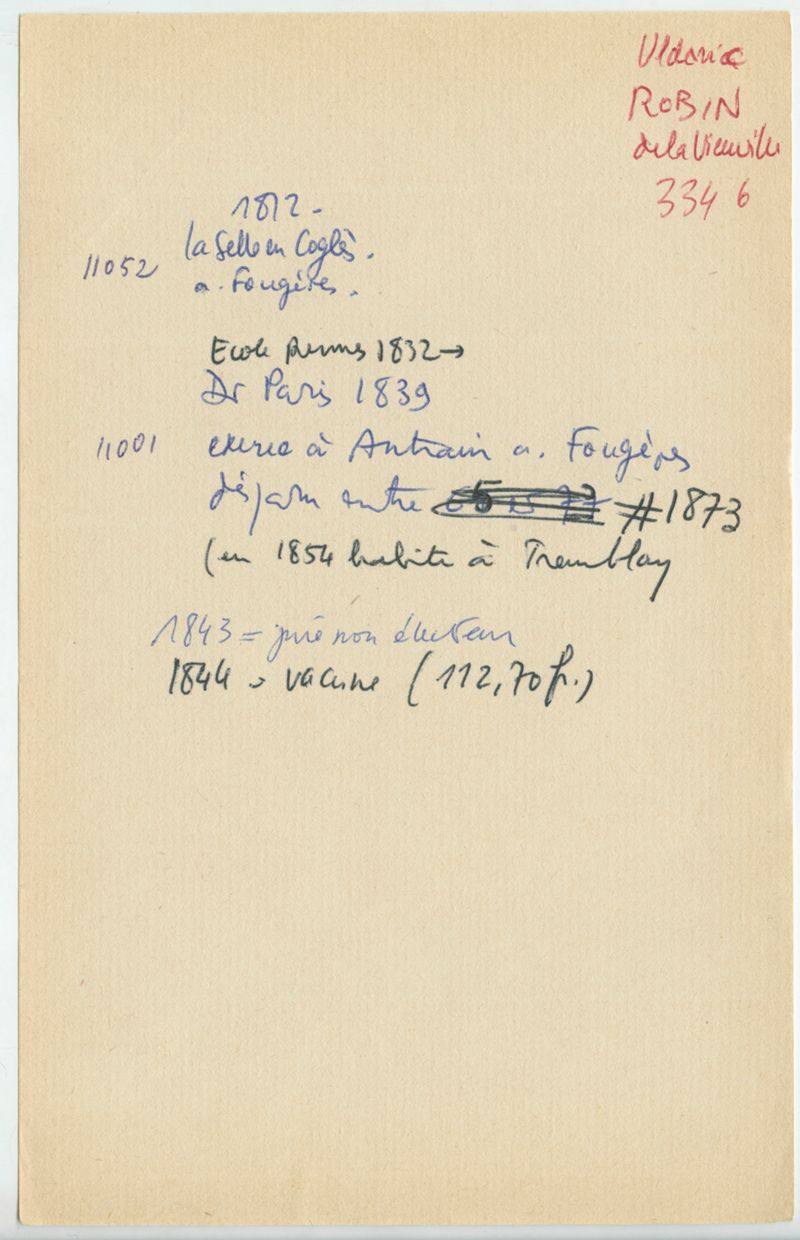 Uldaric
ROBIN
de la Vieuville
334 6
1812 -
11052 la Selle en Coglès.
a. Fougères.
Ecole Rennes 1832→
Dr Paris 1839
11001 exerce à Antrain a. Fougères
disparu entre # 1873
(en 1854 habite à Tremblay
1843 = juré non électeur
1844 → vaccine (112,70 fr.)